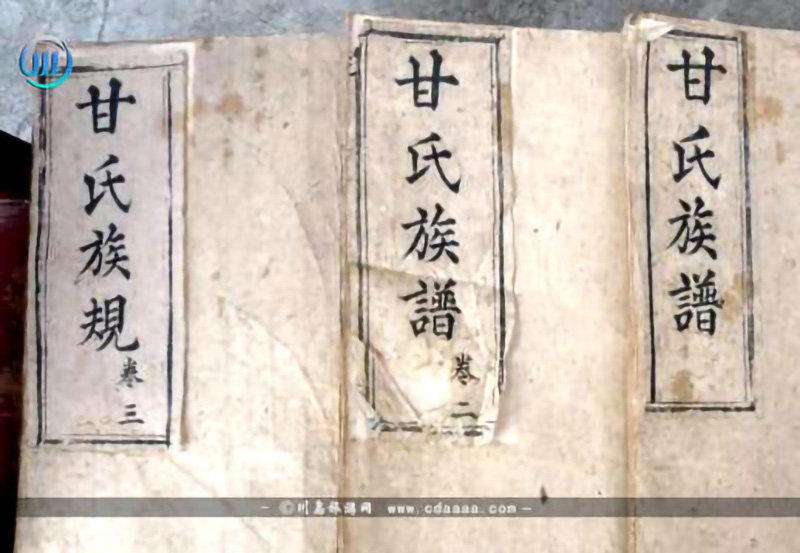 甘氏族譜
甘氏族譜
卷二
甘氏族規
卷三
- ©川島旅游网 www.cdaaaa.com -